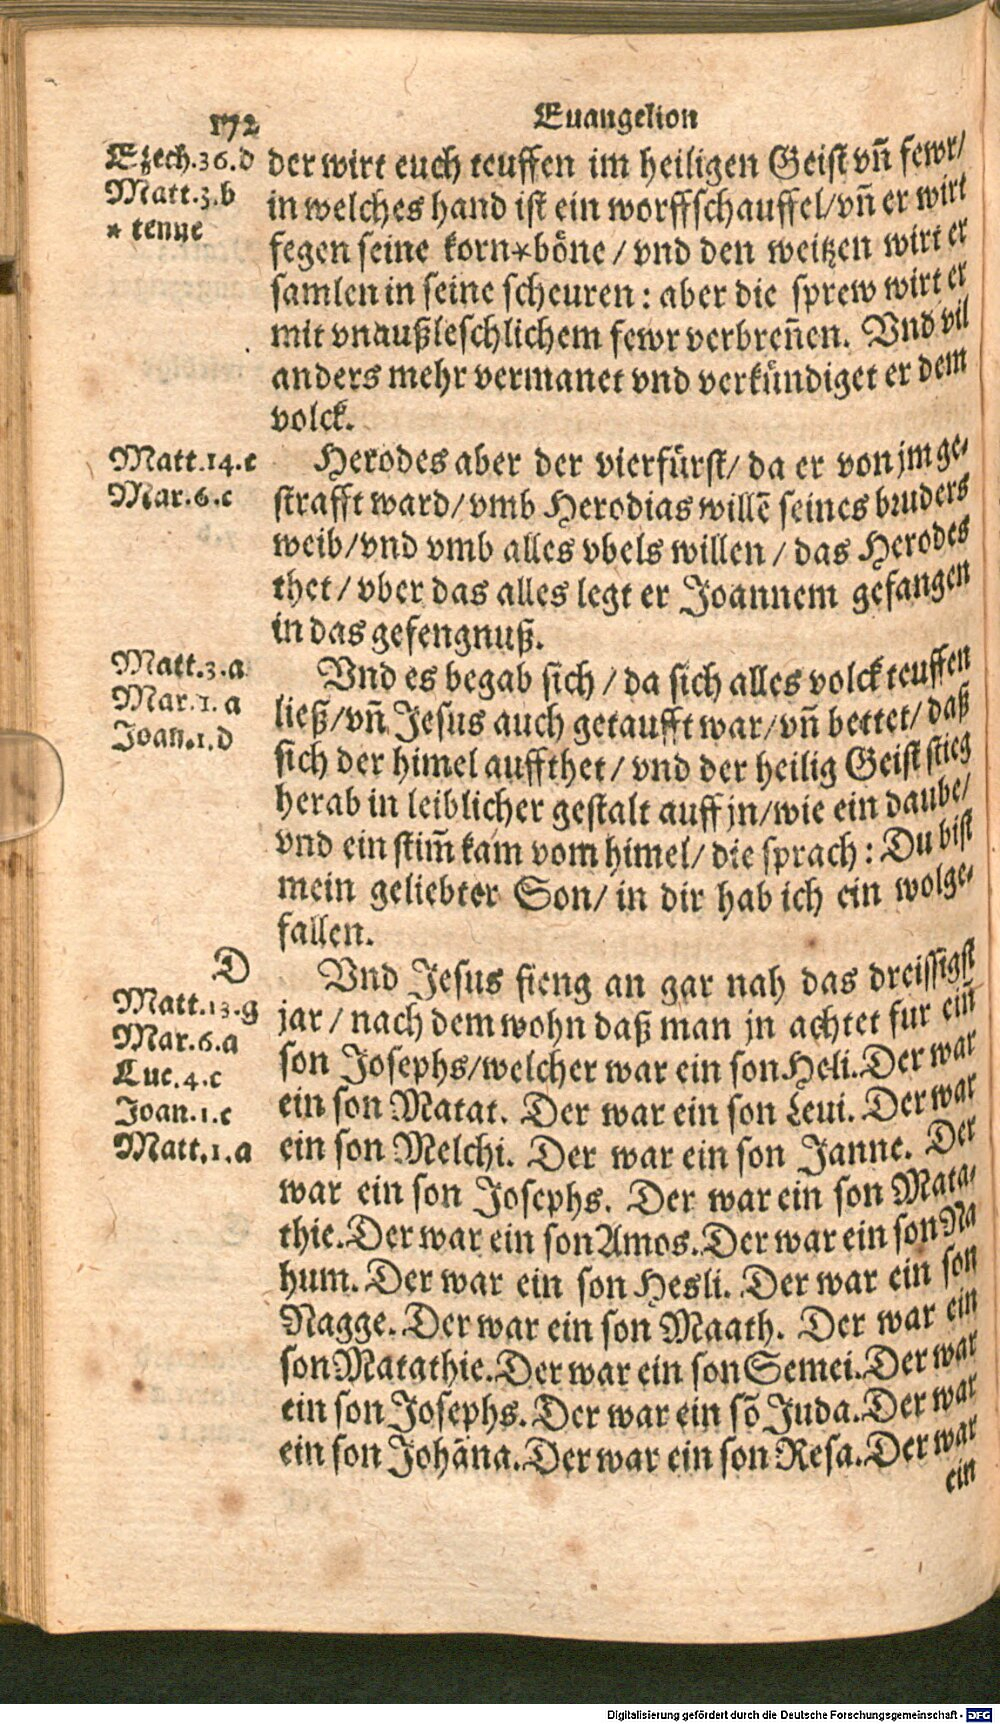 172
Euangelion
Ezech.36.d
Matt.3.b
* tenne
der wirt euch teuffen im heiligen Geist vñ fewr/
in welches hand ist ein worffschauffel/vñ er wirt
fegen seine korn*böne/ vnd den weitzen wirt er
samlen in seine scheuren: aber die sprew wirt er
mit vnaußleschlichem fewr verbreñen. Vnd vil
anders mehr vermanet vnd verkündiget er dem
volck.
Matt.14.c
Mar.6.c
Herodes aber der vierfürst/ da er von jm ge-
strafft ward/vmb Herodias willẽ seines bruders
weib/vnd vmb alles vbels willen/ das Herodes
thet/ vber das alles legt er Joannem gefangen
in das gefengnuß.
Matt.3.a
Mar.1.a
Joan.1.d
Vnd es begab sich/ da sich alles volck teuffen
ließ/vñ Jesus auch getaufft war/vñ bettet/ daß
sich der himel auffthet/ vnd der heilig Geist stieg
herab in leiblicher gestalt auff jn/wie ein daube/
vnd ein stim̃ kam vom himel/ die sprach: Du bist
mein geliebter Son/ in dir hab ich ein wolge-
fallen.
D
Matt.13.g
Mar.6.a
Luc.4.c
Joan.1.e
Matt.1.a
Vnd Jesus fieng an gar nah das dreissigst
jar/ nach dem wohn daß man jn achtet fur eiñ
son Josephs/welcher war ein son Heli. Der war
ein son Matat. Der war ein son Leui. Der war
ein son Melchi. Der war ein son Janne. Der
war ein son Josephs. Der war ein son Mata-
thie. Der war ein son Amos. Der war ein son Na
hum. Der war ein son Hesli. Der war ein son
Nagge. Der war ein son Maath. Der war ein
son Matathie. Der war ein son Semei. Der war
ein son Josephs. Der war ein sõ Juda. Der war
ein son Johãna. Der war ein son Resa. Der war
ein
Digitalisierung gefördert durch die Deutsche Forschungsgemeinschaft - DFG